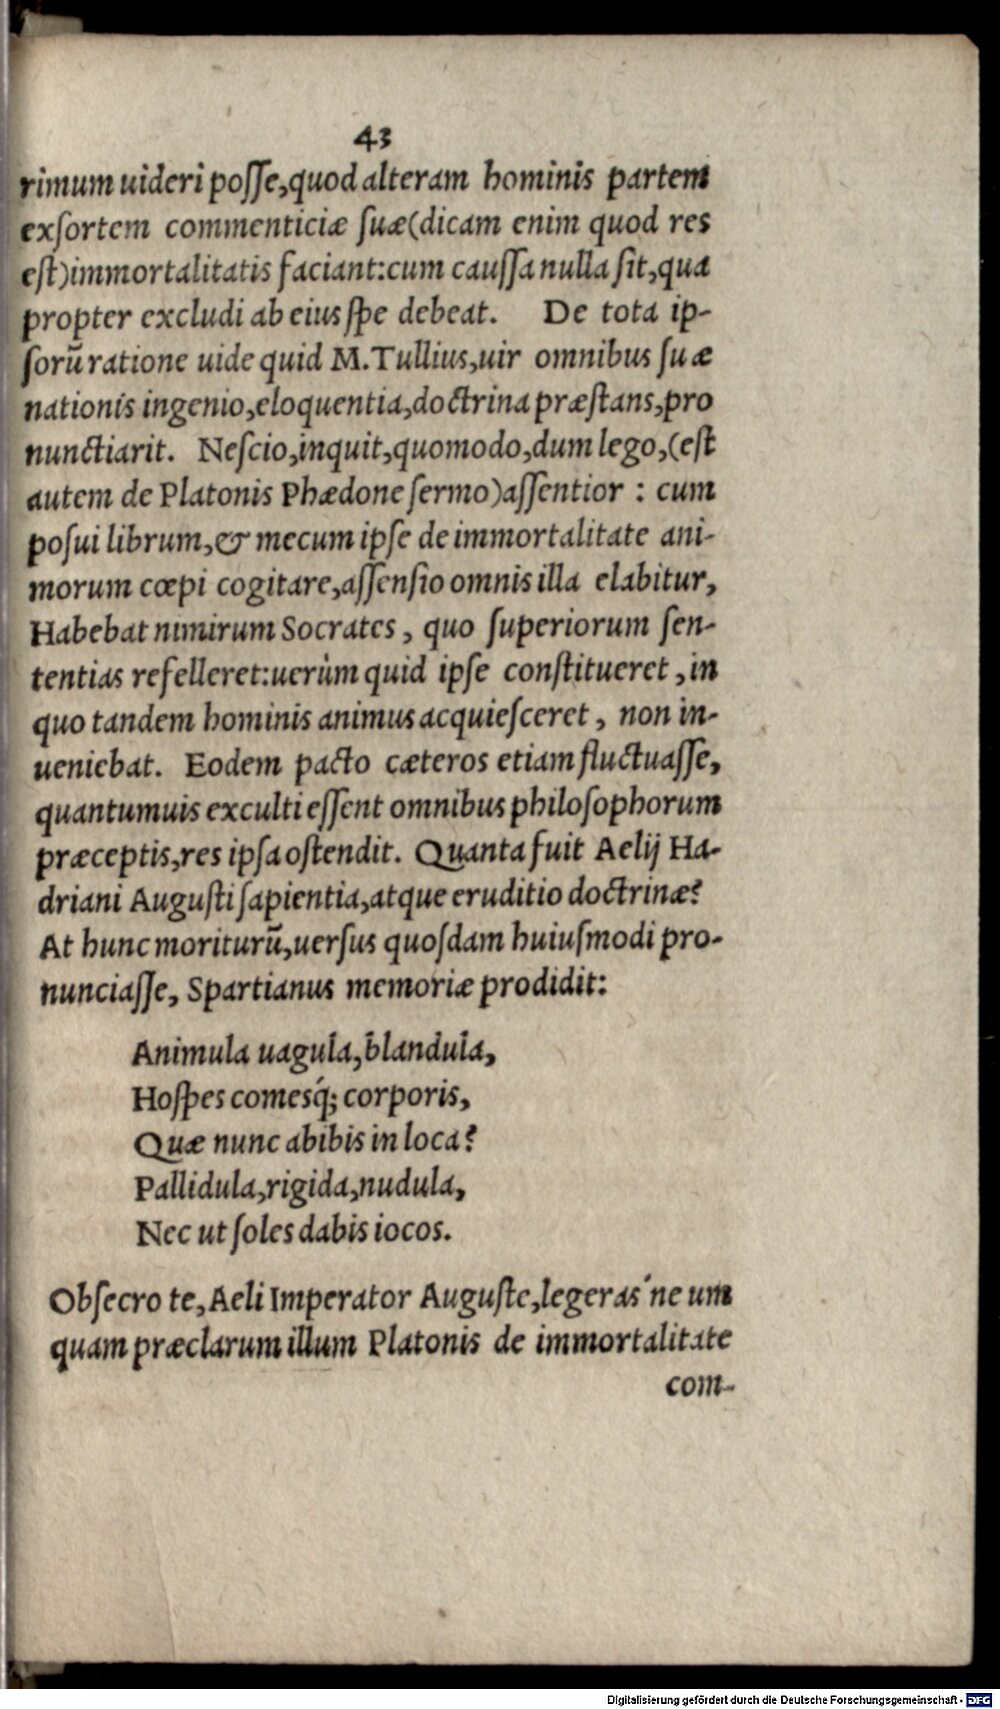 43
rimum uideri poſſe,quod alteram hominis partem
exſortem commenticiæ ſuæ(dicam enim quod res
eſt)immortalitatis faciant:cum cauſſa nulla ſit,qua
propter excludi ab eius ſpe debeat. De tota ip-
ſorũ ratione uide quid M.Tullius,uir omnibus ſuæ
nationis ingenio,eloquentia,doctrina præſtans,pro
nunctiarit. Neſcio,inquit,quomodo,dum lego,(eſt
autem de Platonis Phædone ſermo)aſſentior : cum
poſui librum,& mecum ipſe de immortalitate ani-
morum cœpi cogitare,aſſenſio omnis illa elabitur,
Habebat nimirum Socrates, quo ſuperiorum ſen-
tentias refelleret:uerùm quid ipſe conſtitueret ,in
quo tandem hominis animus acquieſceret, non in-
ueniebat. Eodem pacto cæteros etiam fluctuaſſe,
quantumuis exculti eſſent omnibus philoſophorum
præceptis,res ipſa oſtendit. Quanta fuit Aelij Ha-
driani Auguſti ſapientia,atque eruditio doctrinæ?
At hunc moriturũ,uerſus quoſdam huiuſmodi pro-
nunciaſſe, Spartianus memoriæ prodidit:
Animula uagula,blandula,
Hoſpes comesq́; corporis,
Quæ nunc abibis in loca?
Pallidula,rigida,nudula,
Nec ut ſoles dabis iocos.
Obſecro te,Aeli Imperator Auguſte,legeras´ne um
quam præclarum illum Platonis de immortalitate
com-
Digitalisierung gefördert durch die Deutsche Forschungsgemeinschaft - DFG